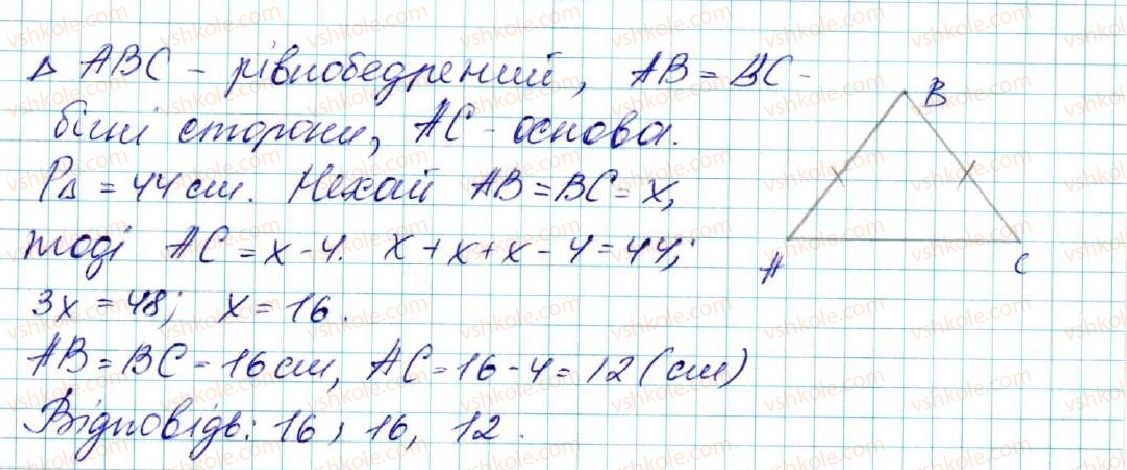 Δ ABC - рівнобедрений, AB = BC -
бічні сторони, AC - основа.
PΔ = 44 см. Нехай AB = BC = x,
тоді AC = x - 4. x + x + x - 4 = 44;
3x = 48; x = 16.
AB = BC = 16 см, AC = 16 - 4 = 12 (см)
Відповідь: 16, 16, 12.
B
A
C
vshkole.com